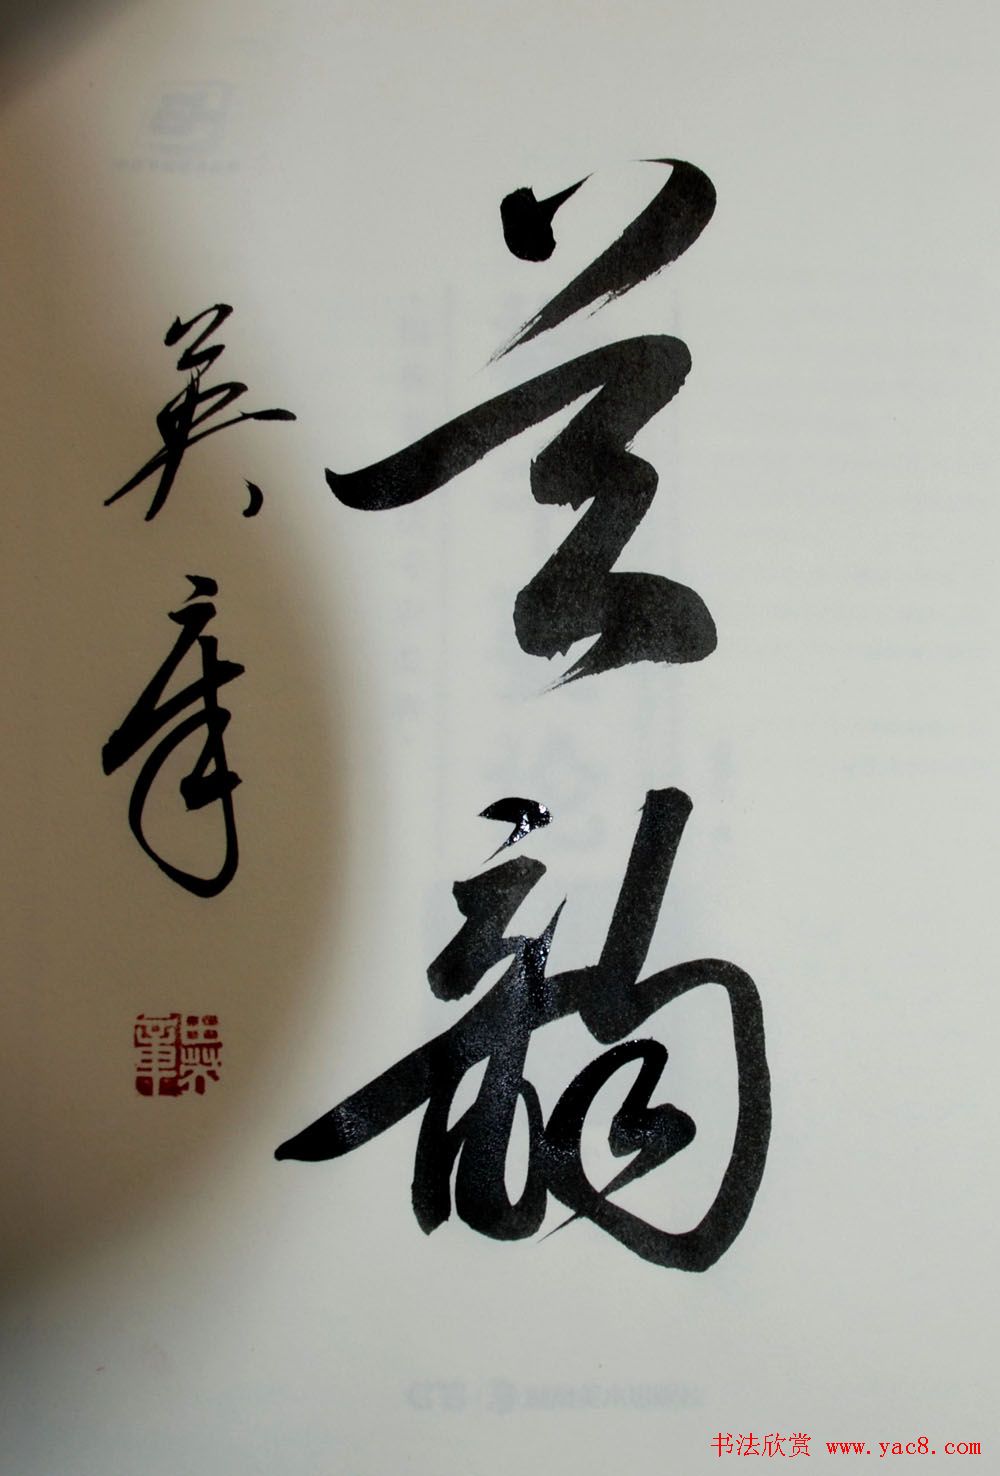 兰韵
英章
书法欣赏 www.yac8.com